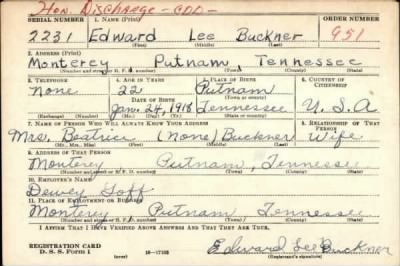 Hon. Discharge - CDD -
SERIAL NUMBER 1. NAME (Print) ORDER NUMBER
2231 Edward Lee Buckner 951
(First) (Middle) (Last)
2. ADDRESS (Print)
Monterey Putnam Tennessee
(Number and street or R. F. D. number) (Town) (County) (State)
3. TELEPHONE 4. AGE IN YEARS 5. PLACE OF BIRTH 6. COUNTRY OF CITIZENSHIP
None 22 Putnam
DATE OF BIRTH (Town or county)
Jan. 24, 1918 Tennessee U. S. A
(Exchange) (Number) (Mo.) (Day) (Yr.) (State or country)
7. NAME OF PERSON WHO WILL ALWAYS KNOW YOUR ADDRESS 8. RELATIONSHIP OF THAT PERSON
Mrs. Beatrice (None) Buckner Wife
(Mr., Mrs., Miss) (First) (Middle) (Last)
9. ADDRESS OF THAT PERSON
Monterey Putnam, Tennessee
(Number and street or R. F. D. number) (Town) (County) (State)
10. EMPLOYER'S NAME
Dewey Goff
11. PLACE OF EMPLOYMENT OR BUSINESS
Monterey Putnam Tennessee
(Number and street or R. F. D. number) (Town) (County) (State)
I AFFIRM THAT I HAVE VERIFIED ABOVE ANSWERS AND THAT THEY ARE TRUE.
REGISTRATION CARD
D. S. S. Form 1 (over) 16-17105 Edward Lee Buckner
(Registrant's signature)